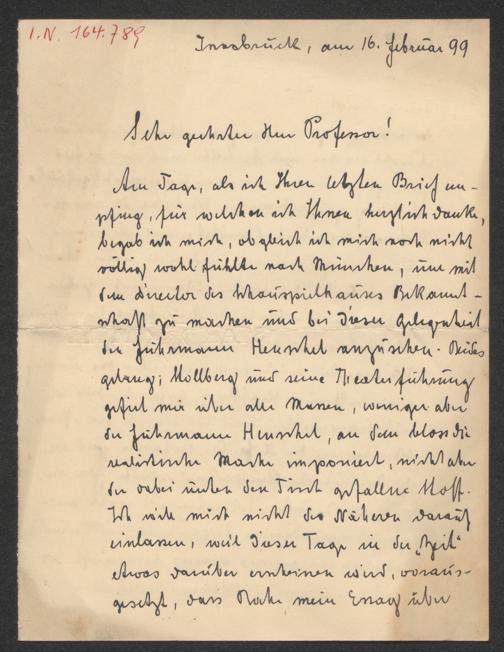 I.N. 164.789
Innsbruck, am 16. Februar 99
Sehr geehrter Herr Professor!
Am Tage, als ich Ihren letzten Brief em-
pfing, für welchen ich Ihnen herzlich danke,
begab ich mich, obgleich ich mich noch nicht
völlig wohl fühlte nach München, um mit
dem Director des Schauspielhauses Bekannt-
schaft zu machen und bei dieser Gelegenheit
den Fuhrmann Henschel anzusehen. Beides
gelang; Stollberg und seine Theaterführung
gefiel mir über alle Massen, weniger aber
der Fuhrmann Henschel, an dem bloss die
realistische Mache imponiert, nicht aber
der dabei unter den Tisch gefallene Stoff.
Ich will mich nicht des Näheren darauf
einlassen, weil dieser Tage in der „Zeit"
etwas darüber erscheinen wird, voraus-
gesetzt, dass mein Essay über